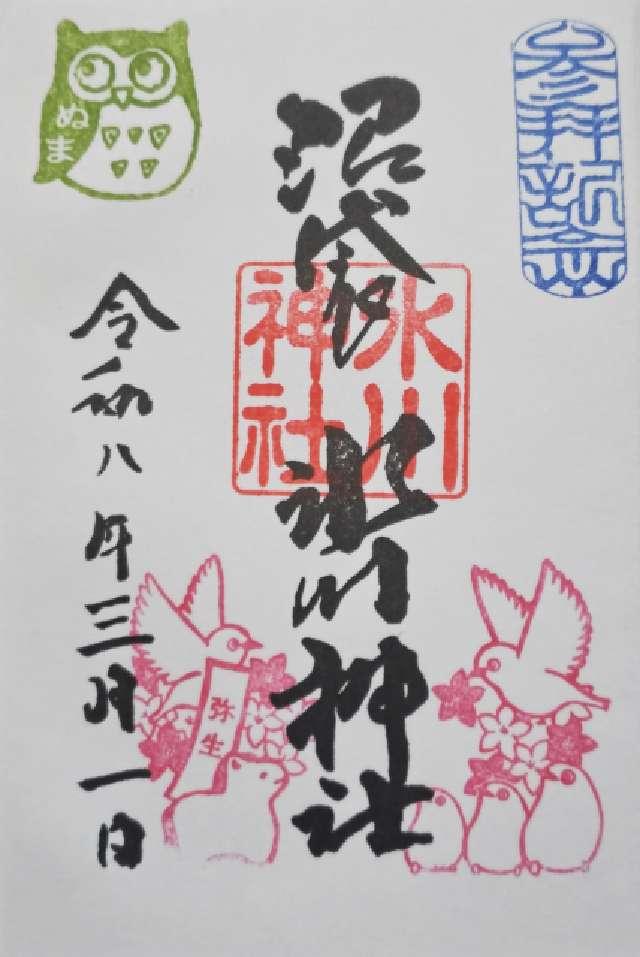 参拝記念
沼袋
氷川神社
氷川
神社
ぬま
令和八年三月一日
弥生